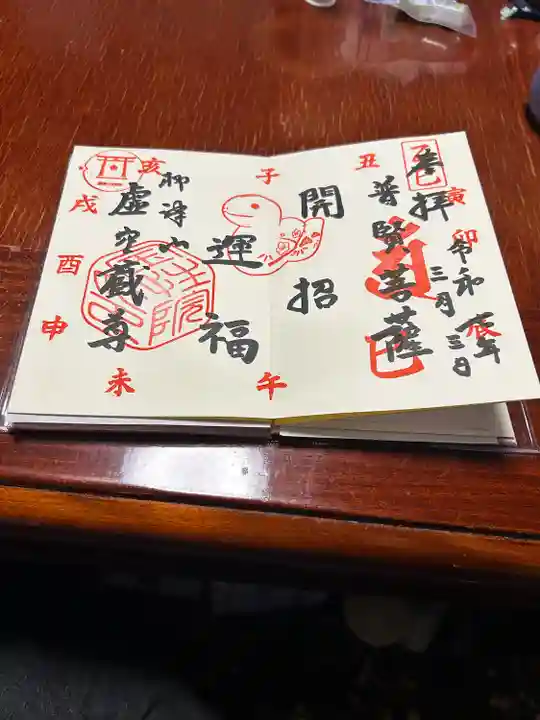 乙巳
奉拝
令和七年
三月三日
普賢菩薩
開運
招福
虚空蔵尊
子
丑
寅
卯
辰
巳
午
未
申
酉
戌
亥